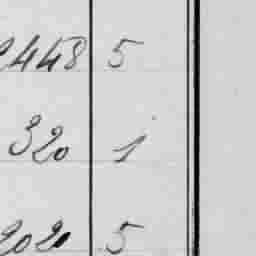 2448 5
320 1
2020 5